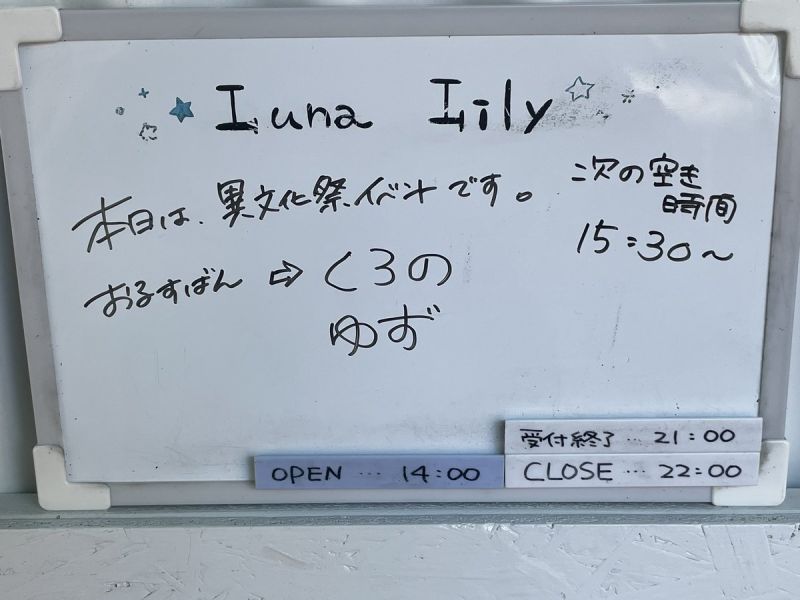 Luna Lily
本日は、異文化祭イベントです。
おるすばん ⇨ くろの
ゆず
次の空き
時間
15:30~
受付終了…21:00
OPEN…14:00
CLOSE…22:00